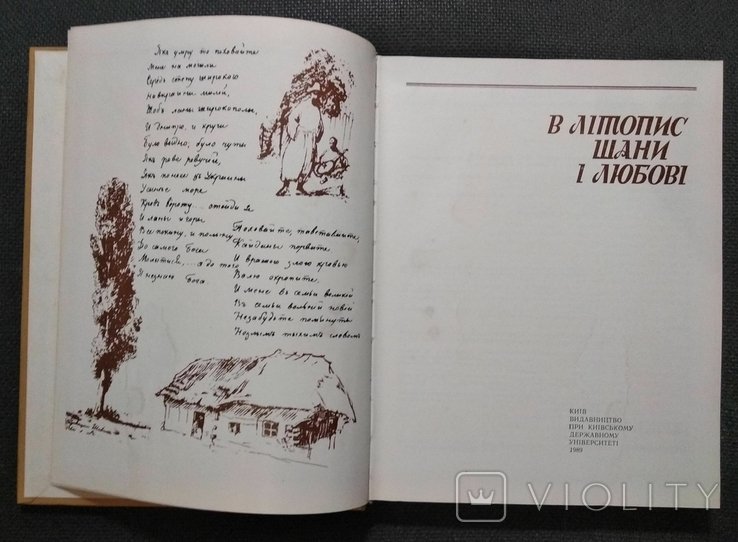 Якъ умру то поховайте
Мене на могили
Середъ степу широкого
На вкраини милой,
Щобъ ланы широкополы,
И Днипро, и кручи
Було выдно, було чути
Якъ реве ревучий,
Якъ понесе съ Украины
У синее море
Кровъ ворожу... отойди я
И ланы и горы
Все покину, и полыну
До самого Бога
Молитися, ... а до того
Я незнаю Бога
Поховайте, та вставайте,
Кайданы порвите
И вражою злою кровью
Волю окропите
И мене въ семьи великій
Въ семьи вольній новій
Незабудьте помянуть
Незлымъ тыхимъ словомъ
В ЛІТОПИС
ШАНИ
І ЛЮБОВІ
КИЇВ
ВИДАВНИЦТВО
ПРИ КИЇВСЬКОМУ
ДЕРЖАВНОМУ
УНІВЕРСИТЕТІ
1989
VIOLITY